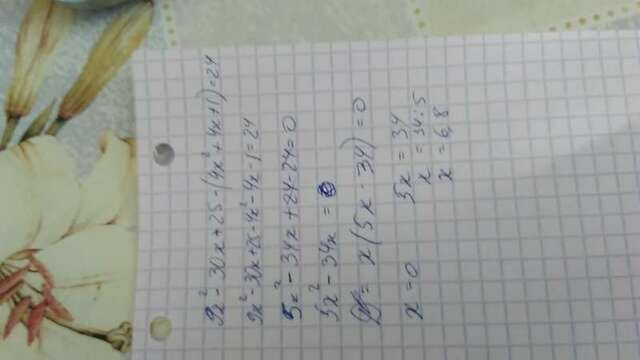 9x² - 30x + 25 - (4x² + 4x + 1) = 24
9x² - 30x + 25 - 4x² - 4x - 1 = 24
5x² - 34x + 24 - 24 = 0
5x² - 34x = 0
x(5x - 34) = 0
x = 0 5x = 34
x = 34 : 5
x = 6,8